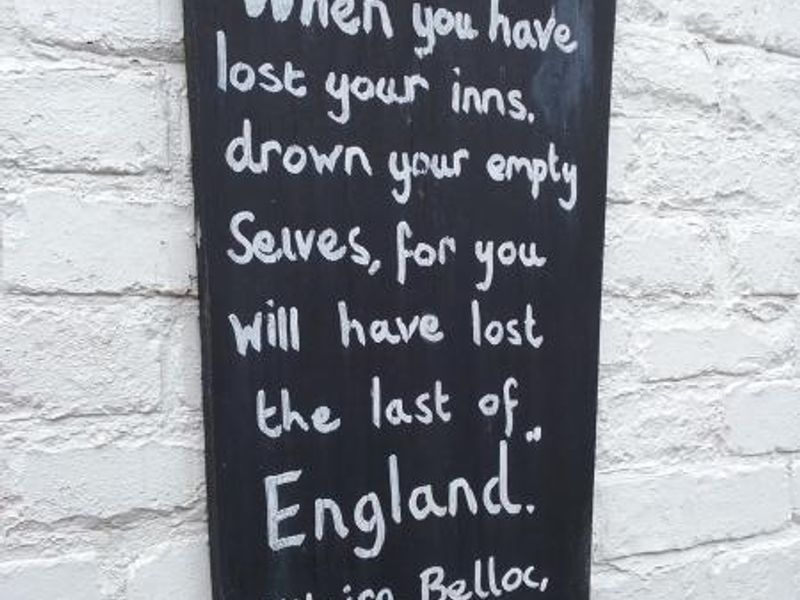 When you have
lost your inns.
drown your empty
Selves, for you
will have lost
the last of
England."
Belloc,